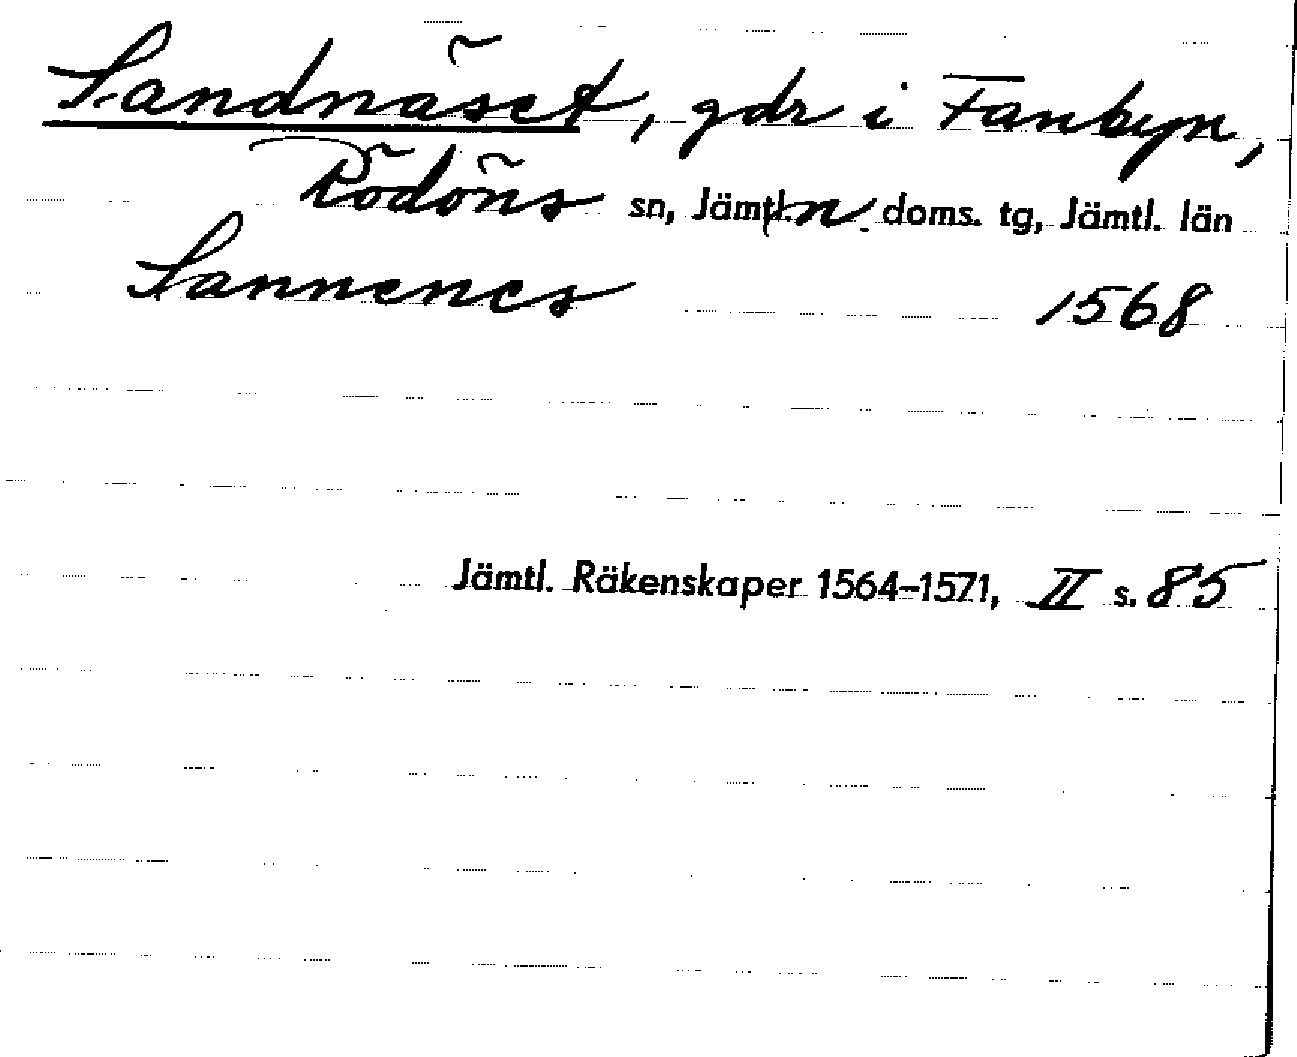 Sandnäset, gdr i Fanbyn,
Rödöns sn, Jämtl. n. doms. tg, Jämtl. län
Sannenes 1568
Jämtl. Räkenskaper 1564–1571, II s. 85